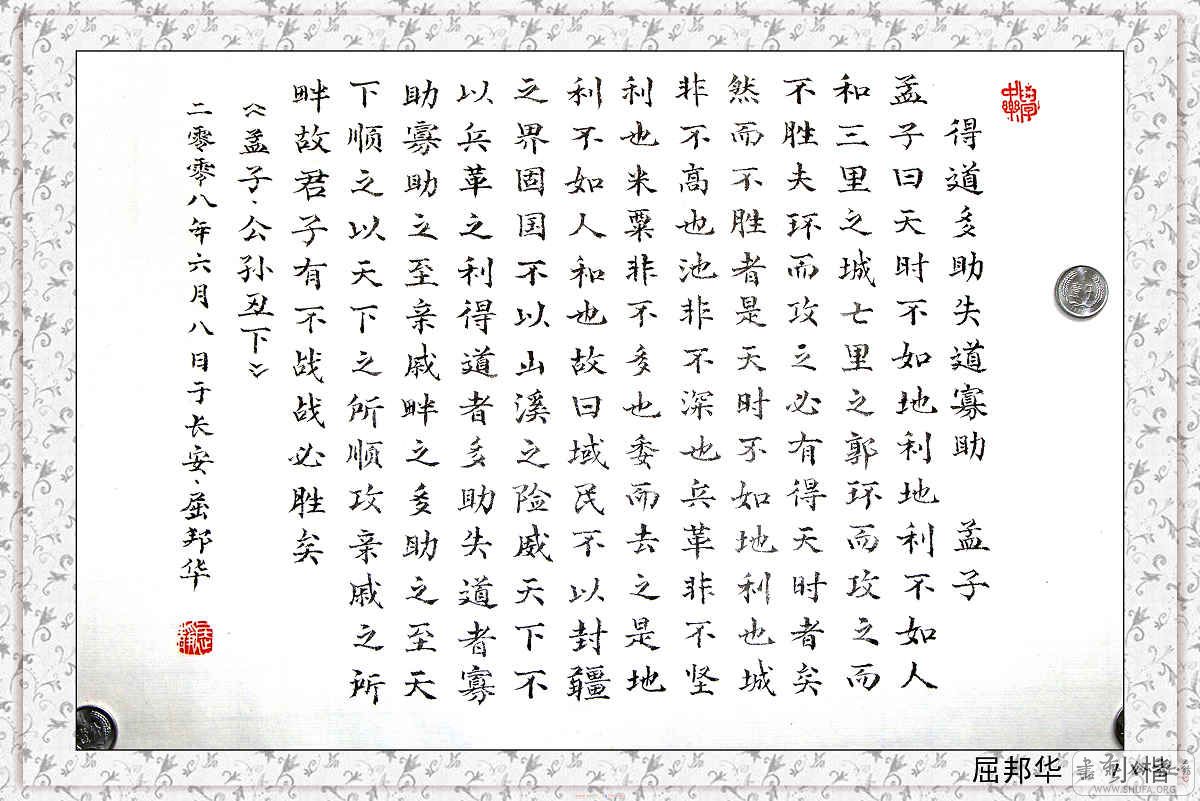 得道多助失道寡助 孟子
孟子曰天时不如地利地利不如人
和三里之城七里之郭环而攻之而
不胜夫环而攻之必有得天时者矣
然而不胜者是天时不如地利也城
非不高也池非不深也兵革非不坚
利也米粟非不多也委而去之是地
利不如人和也故曰域民不以封疆
之界固国不以山溪之险威天下不
以兵革之利得道者多助失道者寡
助寡助之至亲戚畔之多助之至天
下顺之以天下之所顺攻亲戚之所
畔故君子有不战战必胜矣
《孟子·公孙丑下》
二零零八年六月八日于长安·屈邦华
屈邦华 小楷
WWW.SHUFA.ORG